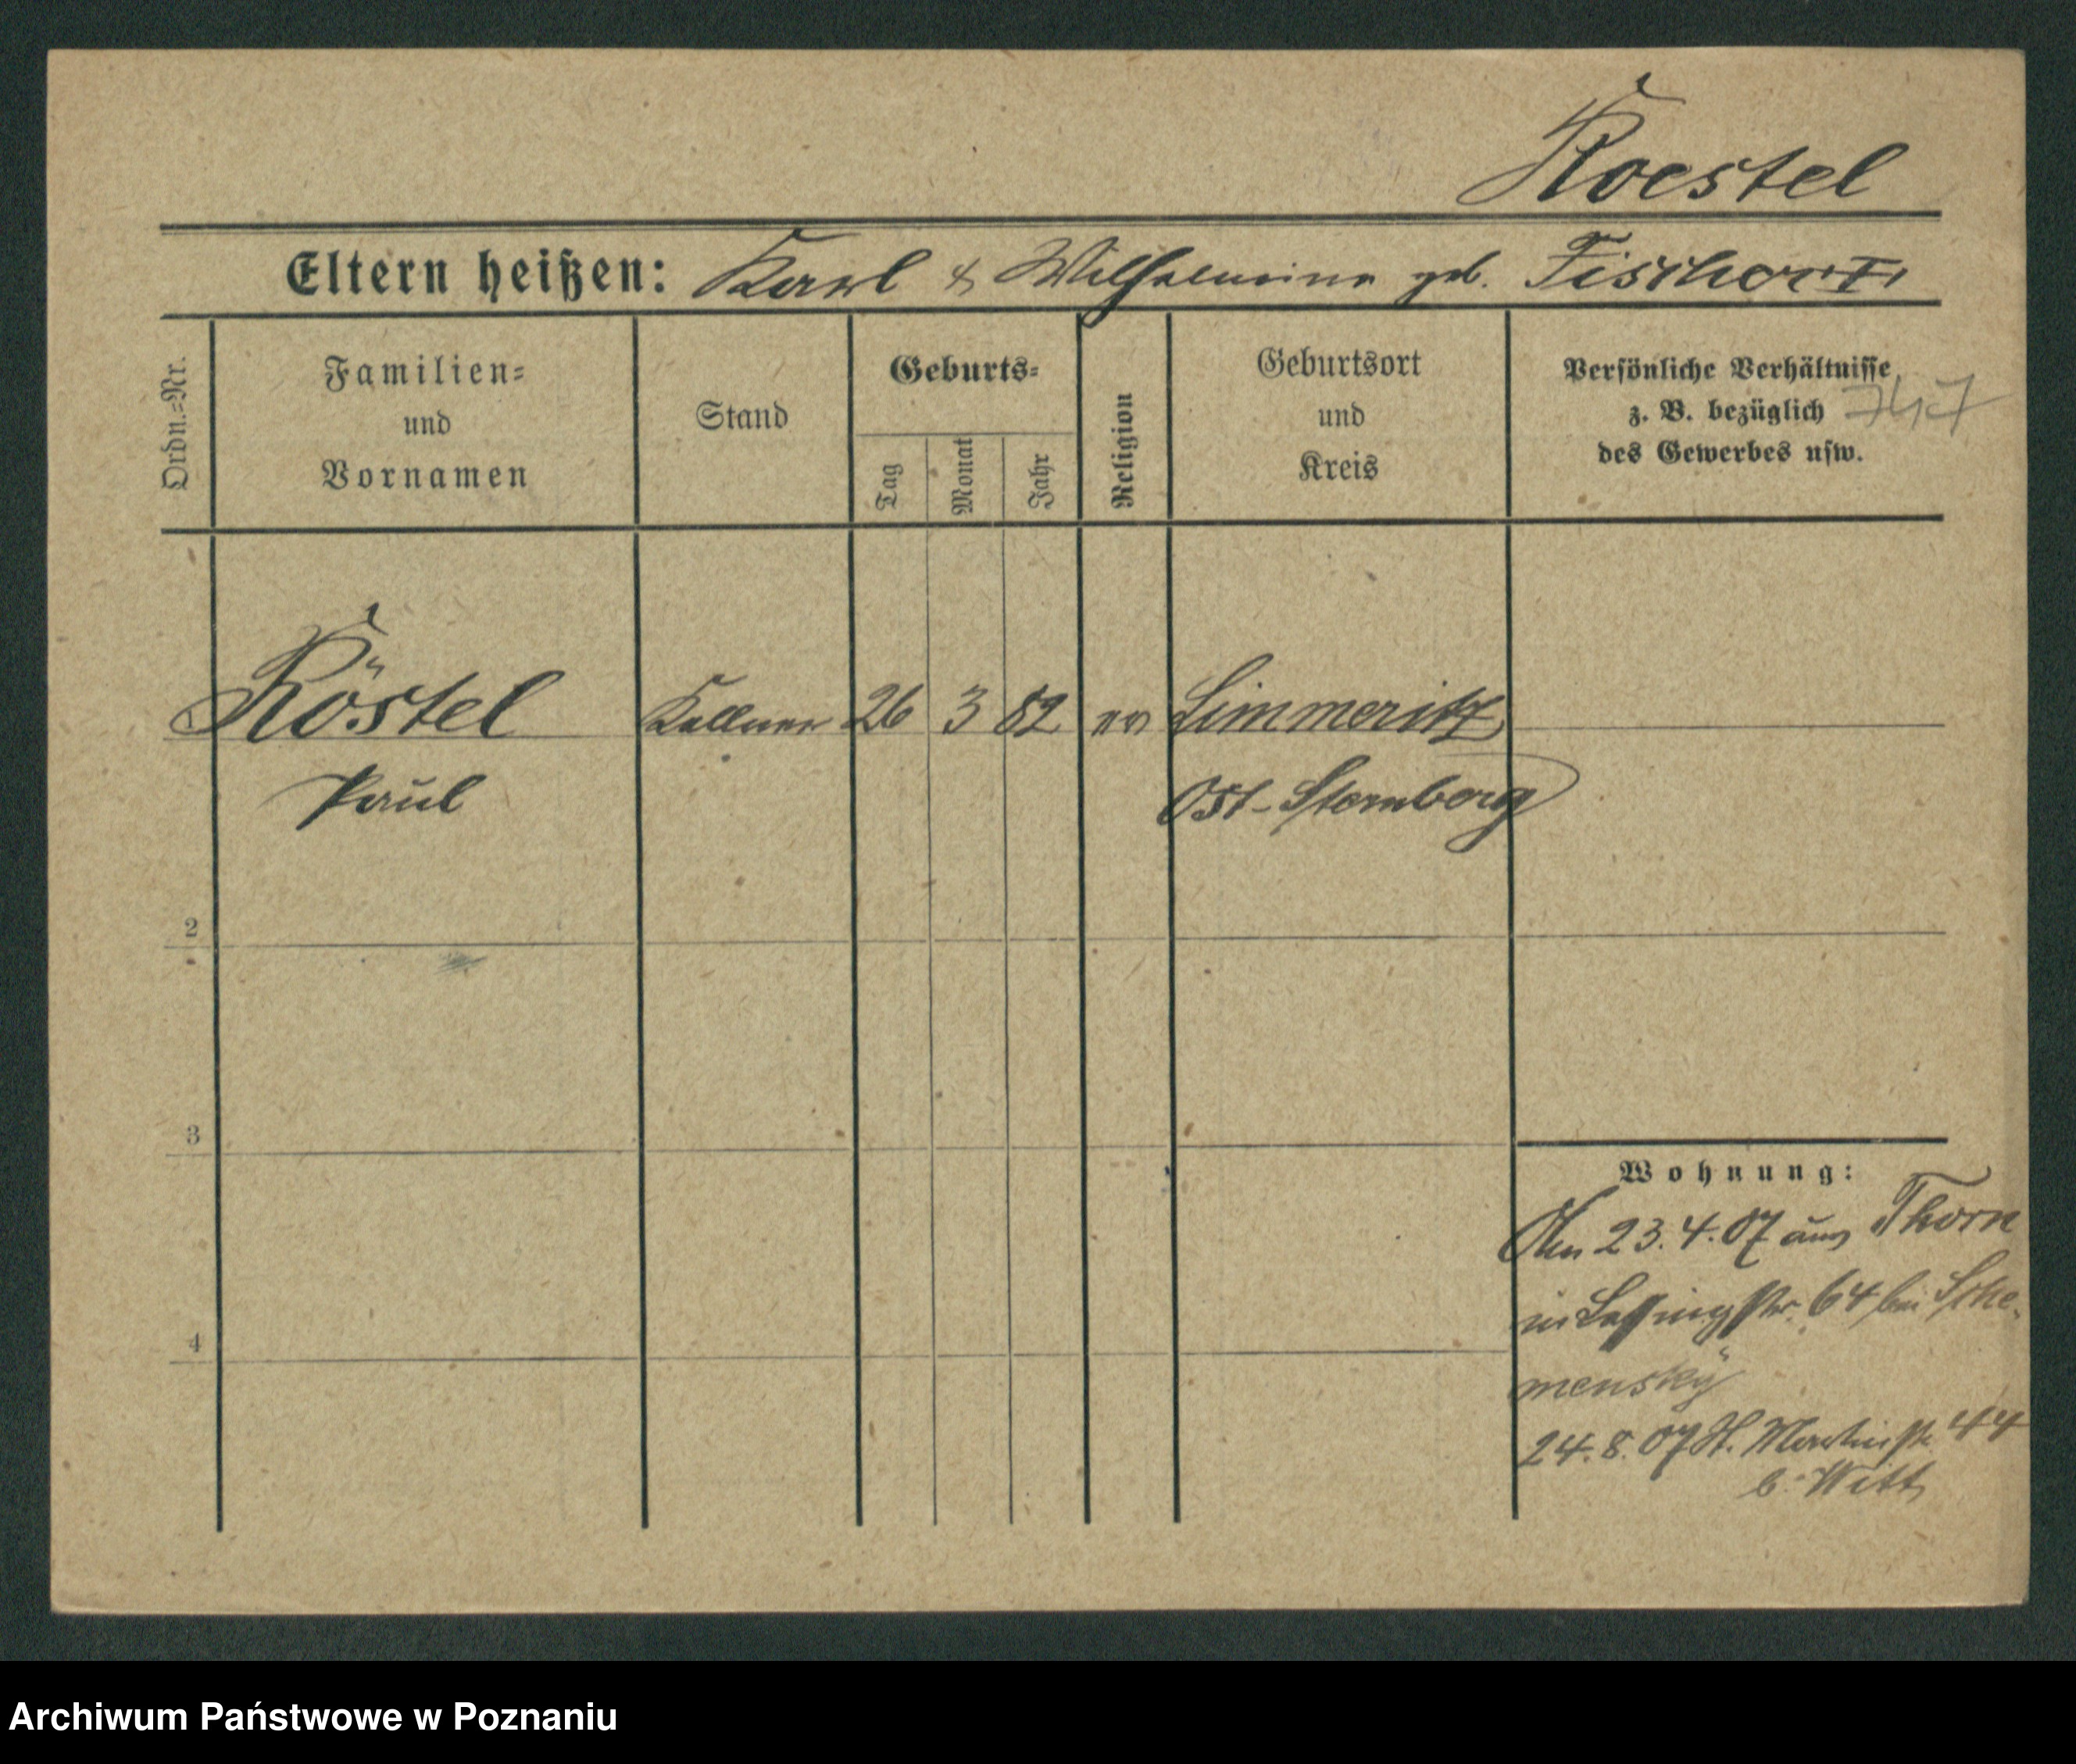 Roestel
Eltern heißen: Karl & Wilhelmine geb.
Ordn.-Nr.
Familien-
und
Vornamen
Stand
Geburts-
Tag
Monat
Jahr
Religion
Geburtsort
und
Kreis
Persönliche Verhältnisse
z. B. bezüglich
des Gewerbes usw.
Röstel Kellner 26 3 82 ev Limmeritz
Paul Ost-Sternberg
2
3
4
Wohnung:
23.4.07 aus Thorn
in Lessingstr. 64 bei Sche-
mensky
24.8.07 St. Martinstr. 44
b. Witt
Archiwum Państwowe w Poznaniu